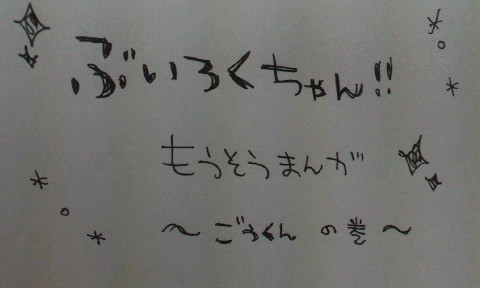 ぶいろくちゃん!!
もうそうまんが
〜ごうくんの巻〜